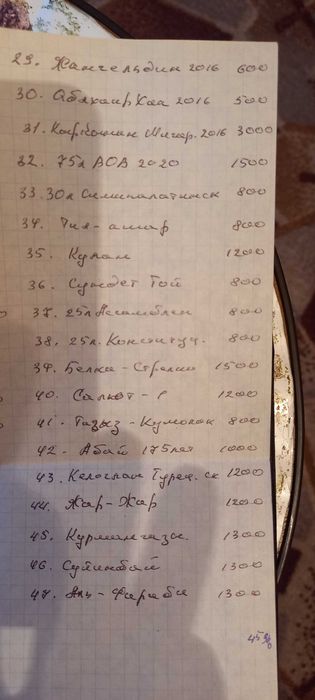 29. Жангельдин 2016 600
30. Абулхаир Хан 2016 500
31. 2016 3000
32. 75л ВОВ 2020 1500
33. 30л Семипалатинск 800
34. Тил-ашар 800
35. Кулан 1200
36. Сундет Той 800
37. 25л Ассамблеи 800
38. 25л. Конституц. 800
39. Белка-Стрелка 1500
40. Салют- 1200
41. Тогыз-Кумолак 800
42. Абай 175лет 1000
43. Келоглан Турец. ск 1200
44. Жар-Жар 1200
45. Курмангазы. 1300
46. Суйинбай 1300
47. Аль-Фараби 1300
45%